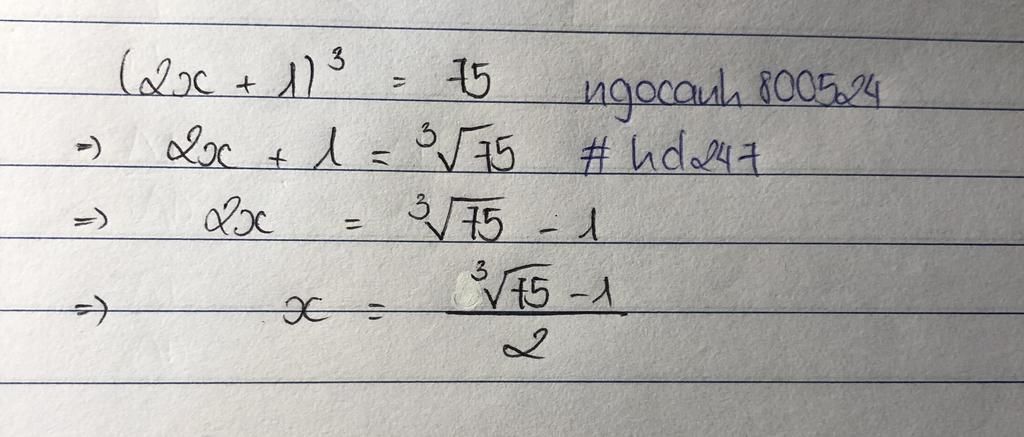 (2x + 1)³ = 75 ngocanh 800524
=> 2x + 1 = ³√75 # hd247
=> 2x = ³√75 - 1
=> x = (³√75 - 1)/2